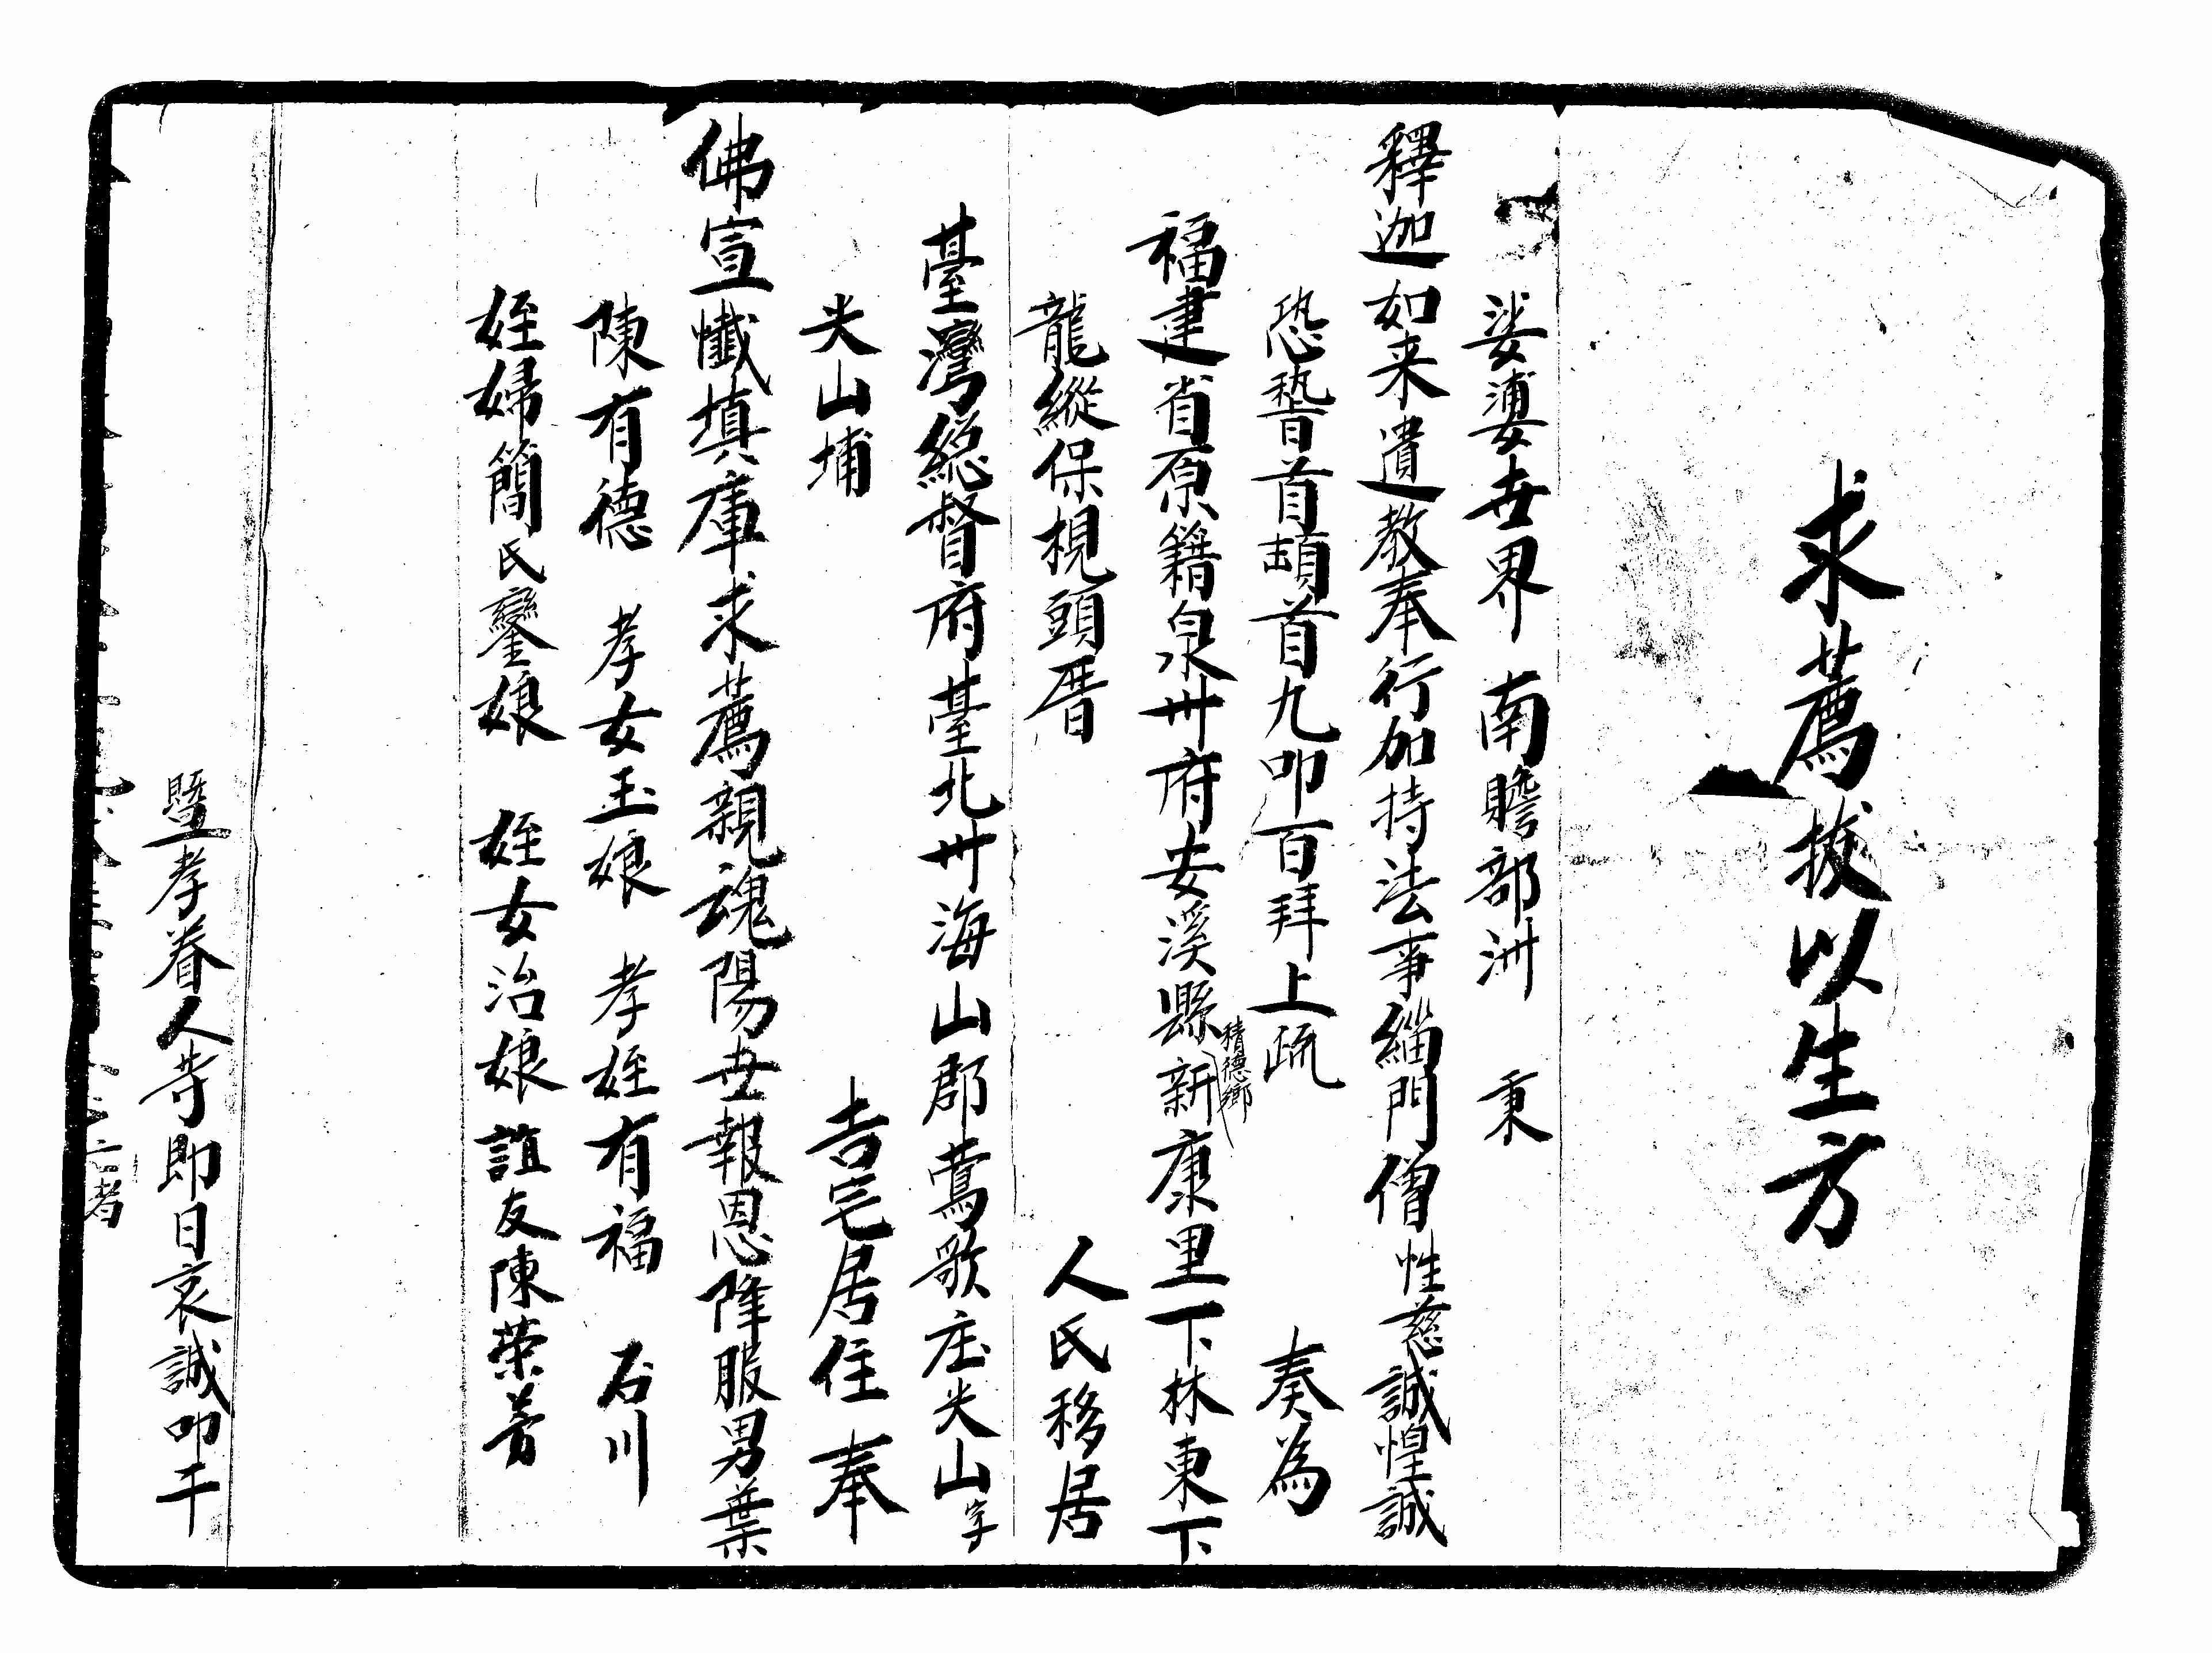 求薦拔以生方
娑婆世界 南瞻部洲 秉
釋迦如来遺教奉行加持法事緇門僧性慈誠惶誠
恐稽首頓首九叩百拜上疏 奏為
福建省原籍泉卅府安溪縣新康里下林東下
積德鄉
龍縱保梘頭厝 人氏移居
臺灣總督府臺北卅海山郡鶯歌庄尖山字
尖山埔 吉宅居住 奉
佛宣懺填庫求薦親魂陽世報恩降服男葉
陳有德 孝女玉娘 孝姪有福 石川
姪婦簡氏鑾娘 姪女治娘 誼友陳荣芳
暨孝眷人等即日哀誠叩干
亡者